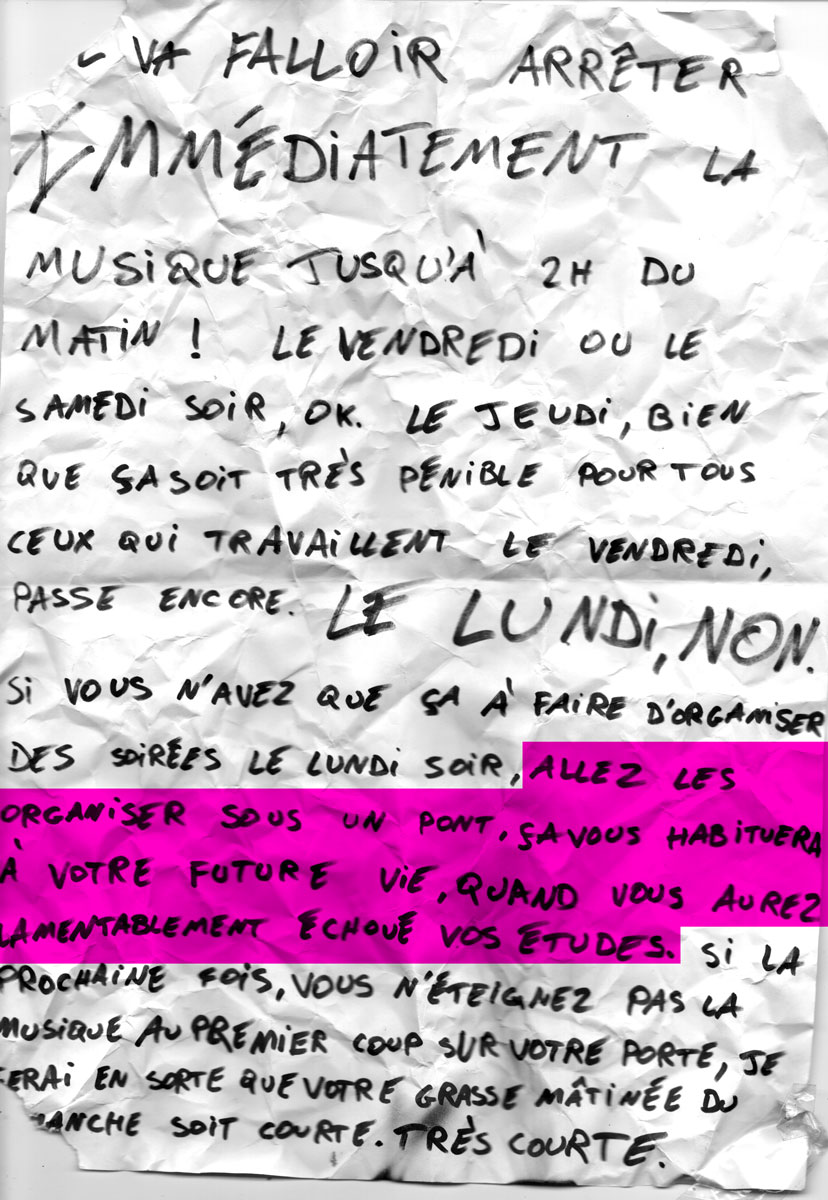 VA FALLOIR ARRÊTER
IMMÉDIATEMENT LA
MUSIQUE JUSQU'À 2H DU
MATIN ! LE VENDREDI OU LE
SAMEDI SOIR, OK. LE JEUDI, BIEN
QUE ÇA SOIT TRÈS PÉNIBLE POUR TOUS
CEUX QUI TRAVAILLENT LE VENDREDI,
PASSE ENCORE. LE LUNDI, NON.
SI VOUS N'AVEZ QUE ÇA À FAIRE D'ORGANISER
DES SOIRÉES LE LUNDI SOIR, ALLEZ LES
ORGANISER SOUS UN PONT, ÇA VOUS HABITUERA
À VOTRE FUTURE VIE, QUAND VOUS AUREZ
LAMENTABLEMENT ÉCHOUÉ VOS ÉTUDES. SI LA
PROCHAINE FOIS, VOUS N'ÉTEIGNEZ PAS LA
MUSIQUE AU PREMIER COUP SUR VOTRE PORTE, JE
FERAI EN SORTE QUE VOTRE GRASSE MÂTINÉE DU
MANCHE SOIT COURTE. TRÈS COURTE.